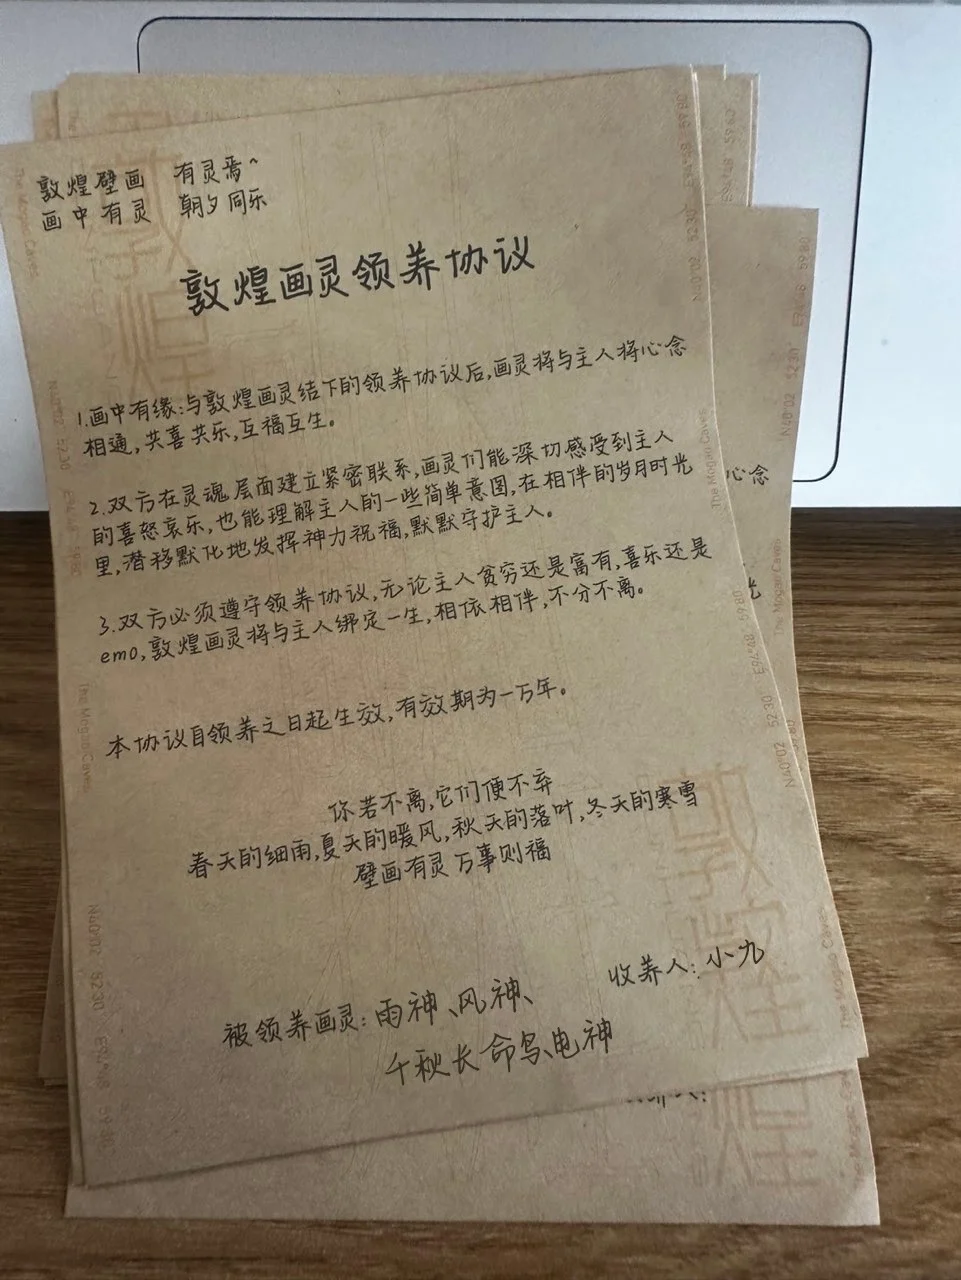 敦煌壁画 有灵焉~
画中有灵 朝夕同乐
敦煌画灵领养协议
1.画中有缘:与敦煌画灵结下的领养协议后,画灵将与主人将心念
相通,共喜共乐,互福互生。
2.双方在灵魂层面建立紧密联系,画灵们能深切感受到主人
的喜怒哀乐,也能理解主人的一些简单意图,在相伴的岁月时光
里,潜移默化地发挥神力祝福,默默守护主人。
3.双方必须遵守领养协议,无论主人贫穷还是富有,喜乐还是
emo,敦煌画灵将与主人绑定一生,相依相伴,不分不离。
本协议自领养之日起生效,有效期为一万年。
你若不离,它们便不弃
春天的细雨,夏天的暖风,秋天的落叶,冬天的寒雪
壁画有灵 万事则福
收养人:小九
被领养画灵:雨神、风神、
千秋长命鸟、电神
心念
光
敦煌
敦煌
The Mogao Caves
N40°02 52.30 E94°48 59.80
The Mogao Caves
N40°02 52.30 E94°48 59.80
N40°02 52.30 E94°48 59.80
The Mogao Caves
N40°02 52.30 E94°48 59.80
The Mogao Caves
N40°02 52.30 E94°48 59.80
The Mogao Caves
The Mogao Caves